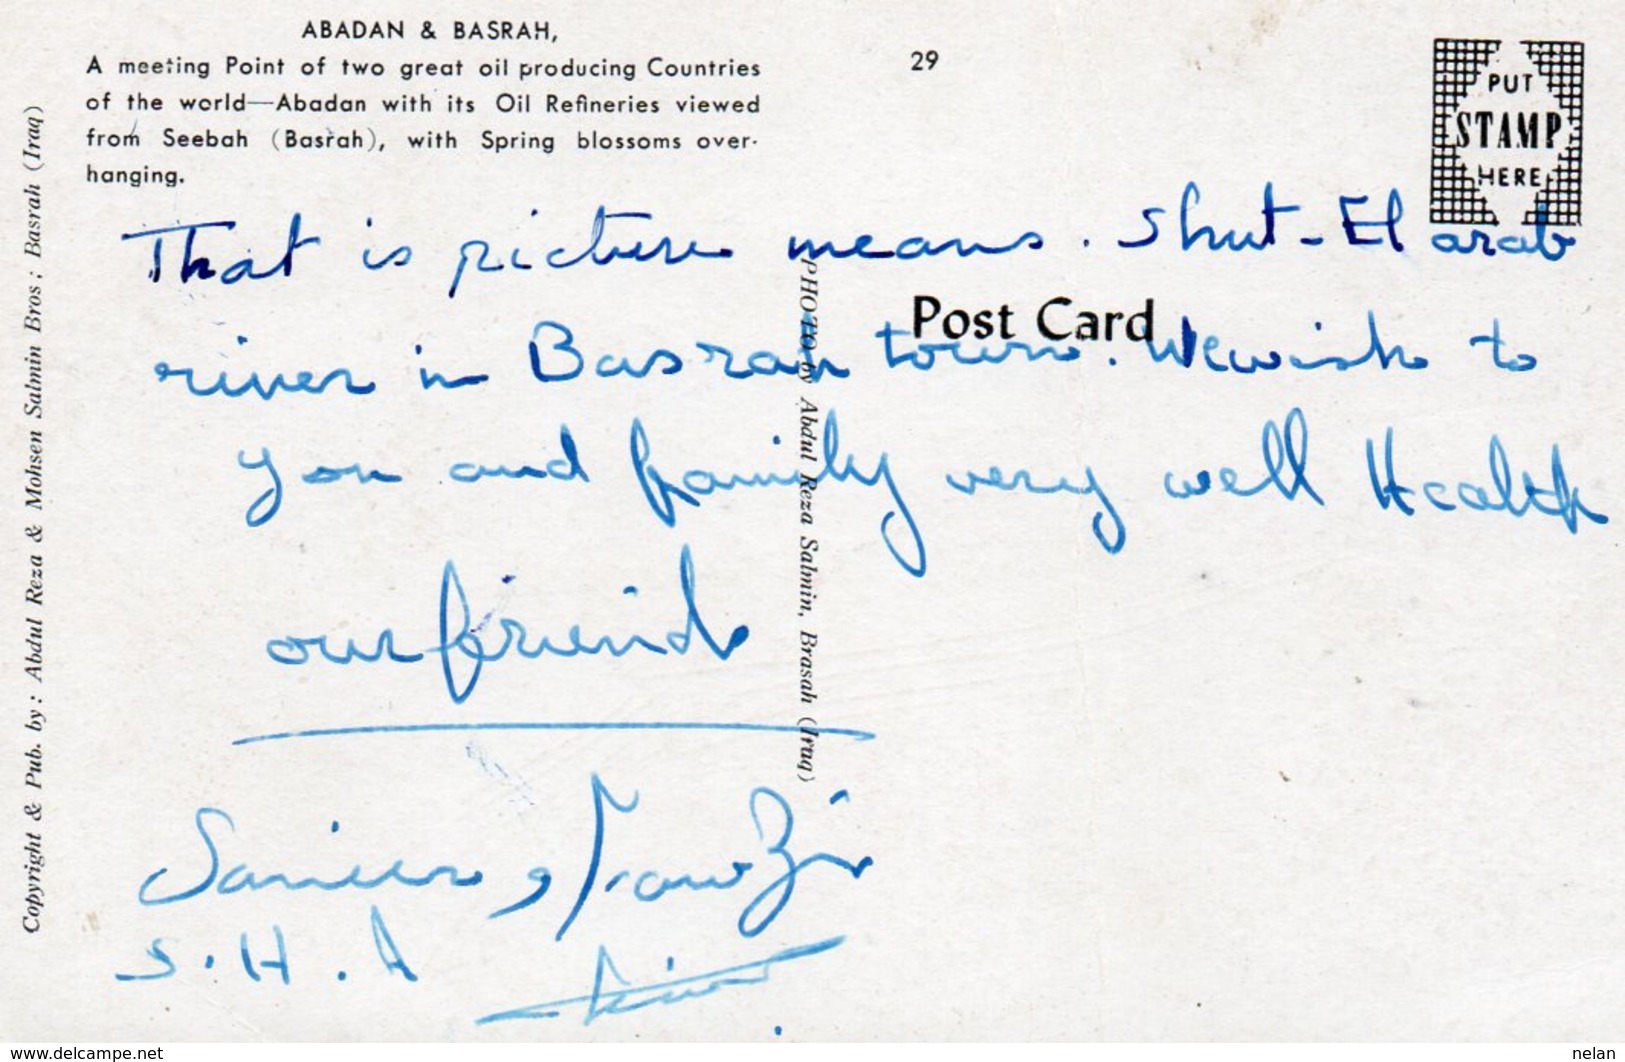 ABADAN & BASRAH,
A meeting Point of two great oil producing Countries
of the world—Abadan with its Oil Refineries viewed
from Seebah (Basrah), with Spring blossoms over-
hanging.
29
PUT
STAMP
HERE
Copyright & Pub. by: Abdul Reza & Mohsen Salmin Bros; Basrah (Iraq)
That is picture means. Shut-El arab
Post Card
river in Basrah town. We wish to
you and family very well Health
our friends
PHOTO by Abdul Reza Salmin, Brasah (Iraq)
S.H.A
www.delcampe.net
nelan